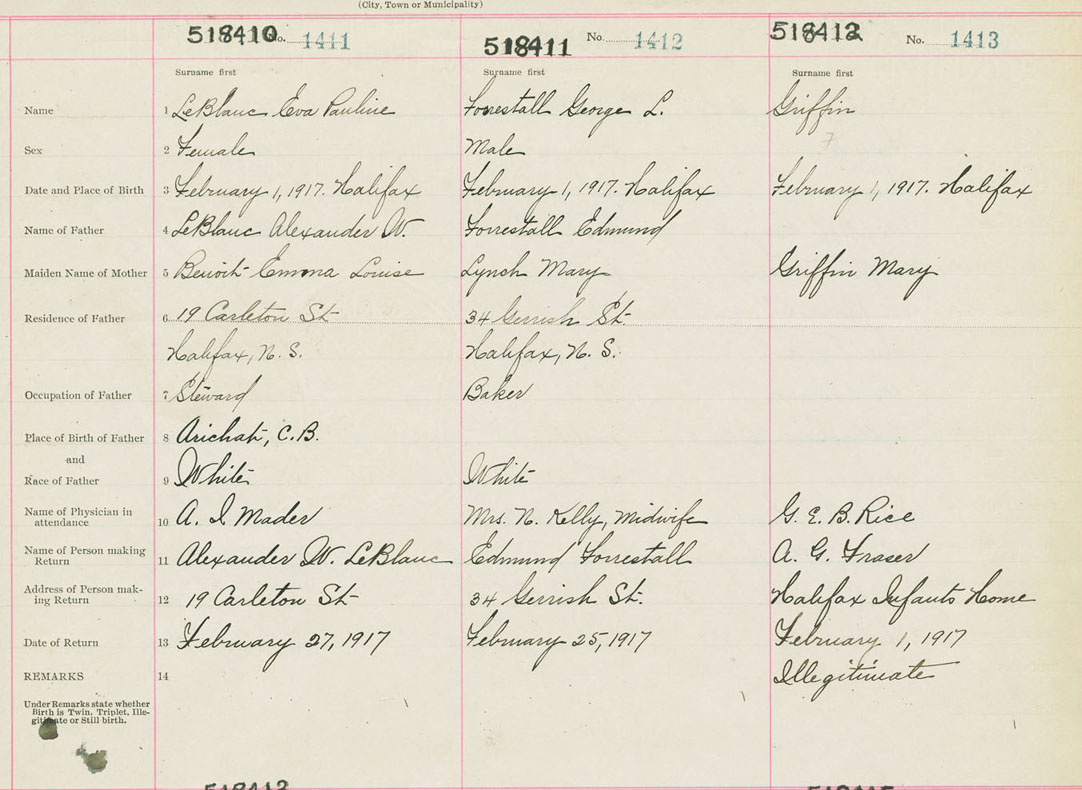 (City, Town or Municipality)
518410 No. 1411
518411 No. 1412
518412 No. 1413
Surname first Surname first Surname first
Name 1 LeBlanc Eva Pauline Forrestall George L. Griffin
Sex 2 Female Male F
Date and Place of Birth 3 February 1, 1917. Halifax February 1, 1917. Halifax February 1, 1917. Halifax
Name of Father 4 LeBlanc Alexander W. Forrestall Edmund
Maiden Name of Mother 5 Benoit Emma Louise Lynch Mary Griffin Mary
Residence of Father 6 19 Carleton St 34 Gerrish St.
Halifax, N. S. Halifax, N. S.
Occupation of Father 7 Steward Baker
Place of Birth of Father 8 Arichat, C.B.
and
Race of Father 9 White White
Name of Physician in attendance 10 A. I Mader Mrs. N. Kelly, Midwife G. E. B. Rice
Name of Person making Return 11 Alexander W. LeBlanc Edmund Forrestall A. G. Fraser
Address of Person making Return 12 19 Carleton St 34 Gerrish St. Halifax Infants Home
Date of Return 13 February 27, 1917 February 25, 1917 February 1, 1917
REMARKS 14 Illegitimate
Under Remarks state whether
Birth is Twin, Triplet, Ille-
gitimate or Still birth.